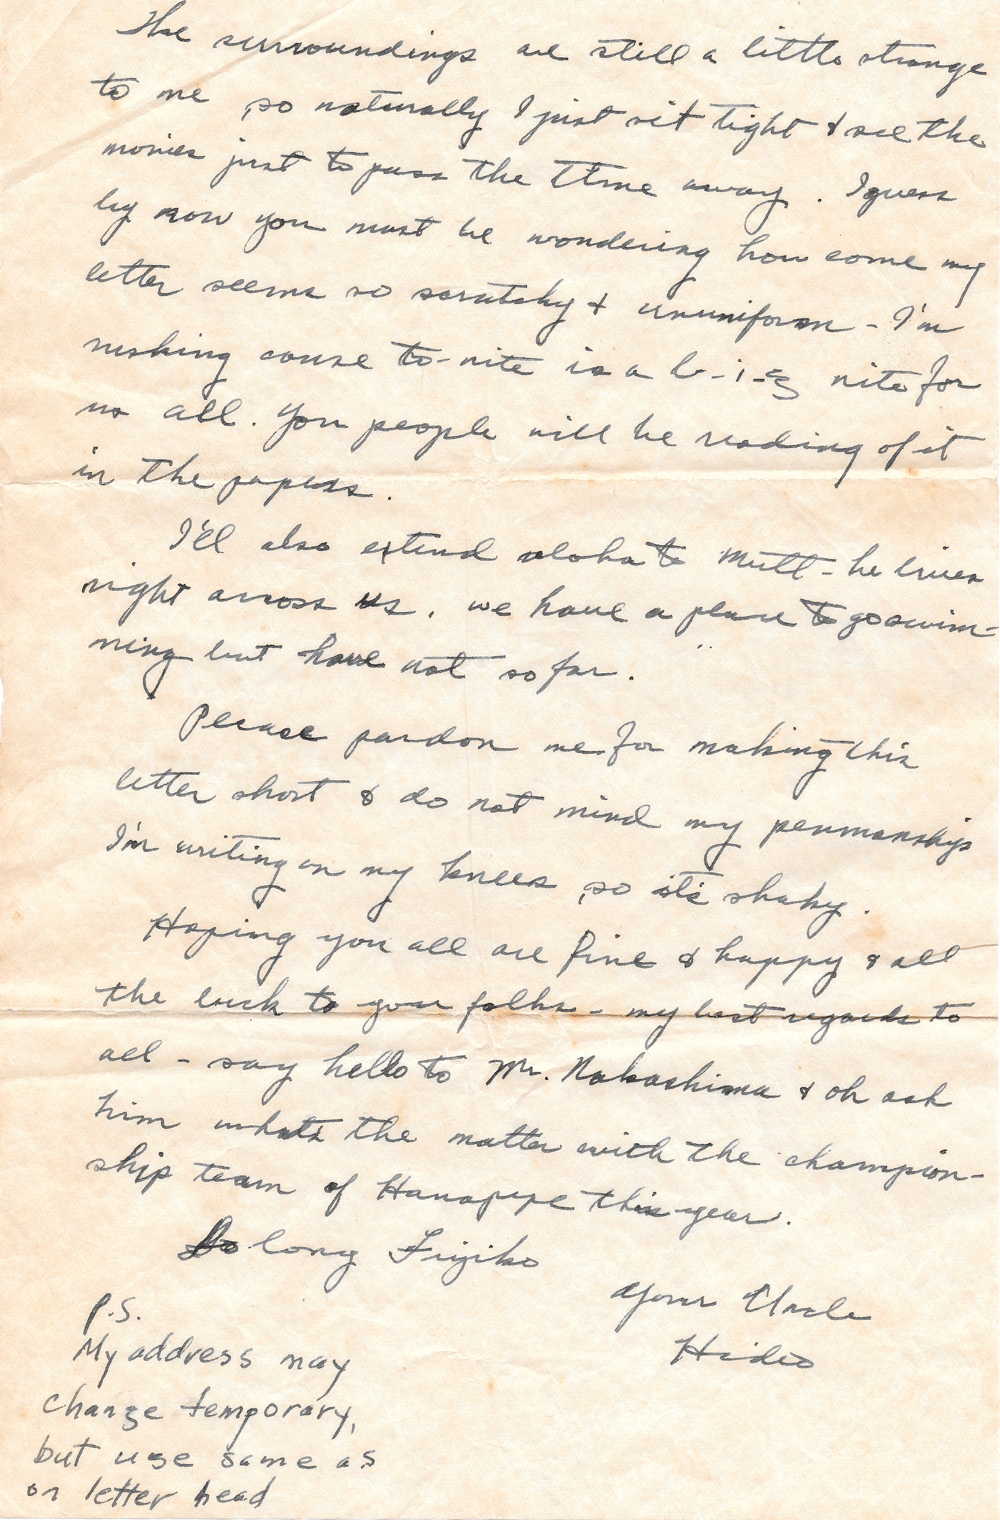 The surroundings are still a little strange
to me, so naturally I just sit tight & see the
movies just to pass the time away. I guess
by now you must be wondering how come my
letter seems so scratchy & ununiform - I'm
rushing cause to-nite is a b-i-g nite for
us all. You people will be reading of it
in the papers.
I'll also extend aloha to Mutt - he lives
right across us. we have a place to go swim-
ming but have not so far.
Please pardon me for making this
letter short & do not mind my penmanship
I'm writing on my knees, so it's shaky.
Hoping you all are fine & happy & all
the luck to your folks - my best regards to
all - say hello to Mr. Nakashima & oh ask
him what's the matter with the champion-
ship team of Hanapepe this year.
So long Fujiko
Your Uncle
Hideo
P.S.
My address may
change temporary,
but use same as
on letter head